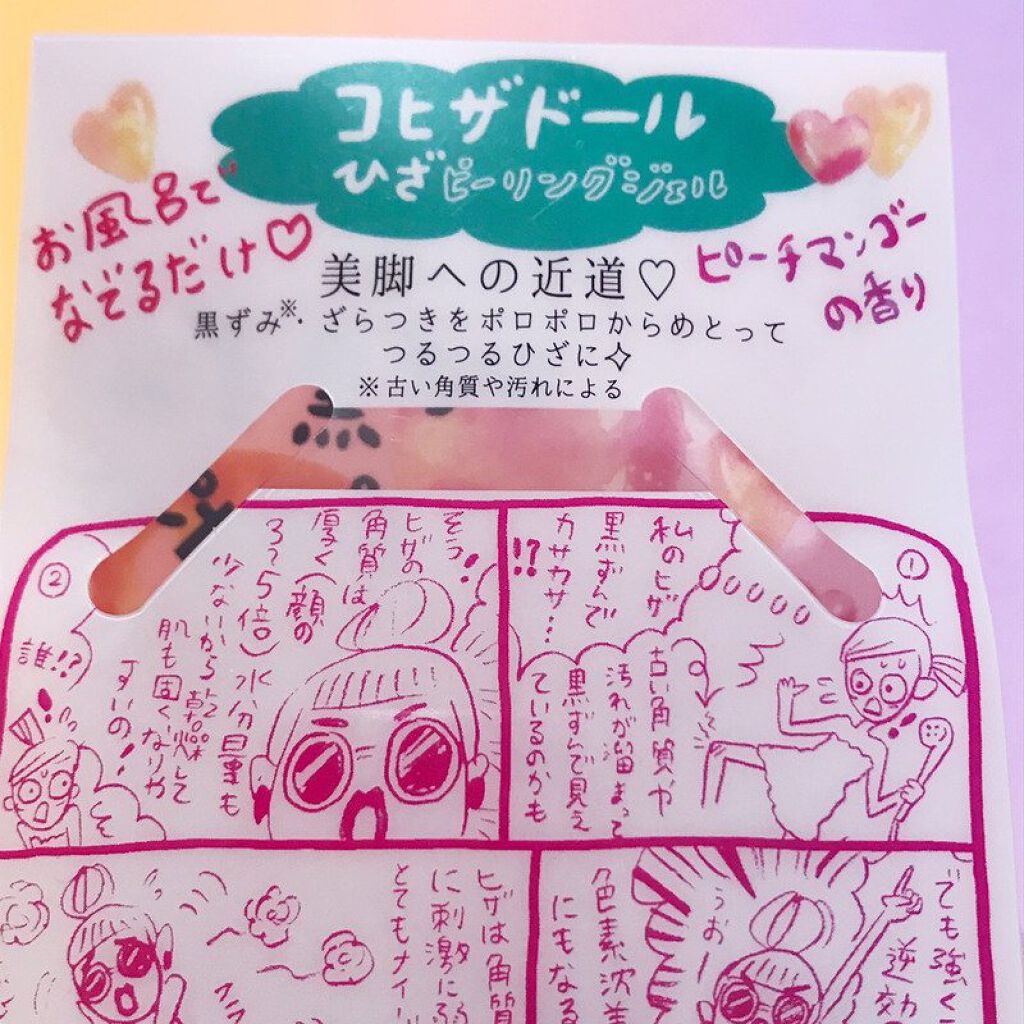 コヒザドール
ひざピーリングジェル
お風呂で
なぞるだけ♡
ピーチマンゴー
の香り
美脚への近道♡
黒ずみ※・ざらつきをポロポロからめとって
つるつるひざに✧
※古い角質や汚れによる
①
私のヒザ
黒ずんで
カサカサ…
!?
古い角質や
汚れが溜まって
黒ずんで見え
ているのかも
②
そう!
ヒザの
角質は
厚く(顔の
3〜5倍)水分量も
少ないから乾燥して
肌も固くなりや
すいの!
誰!?
でも強く
逆効
うおー
色素沈着
にもなる
ヒザは角質
に刺激に弱
とてもナイー